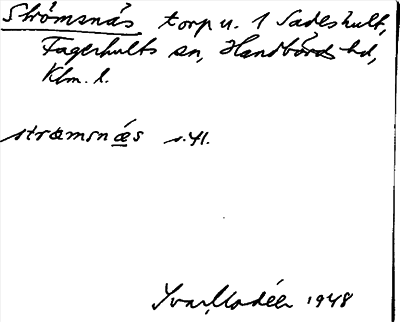 Strömsnäs torp u. 1 Sadeshult,
Fagerhults sn, Handbörds hd,
Klm. l.
strœmsnæs s. 41.
Ivar Modéer 1948